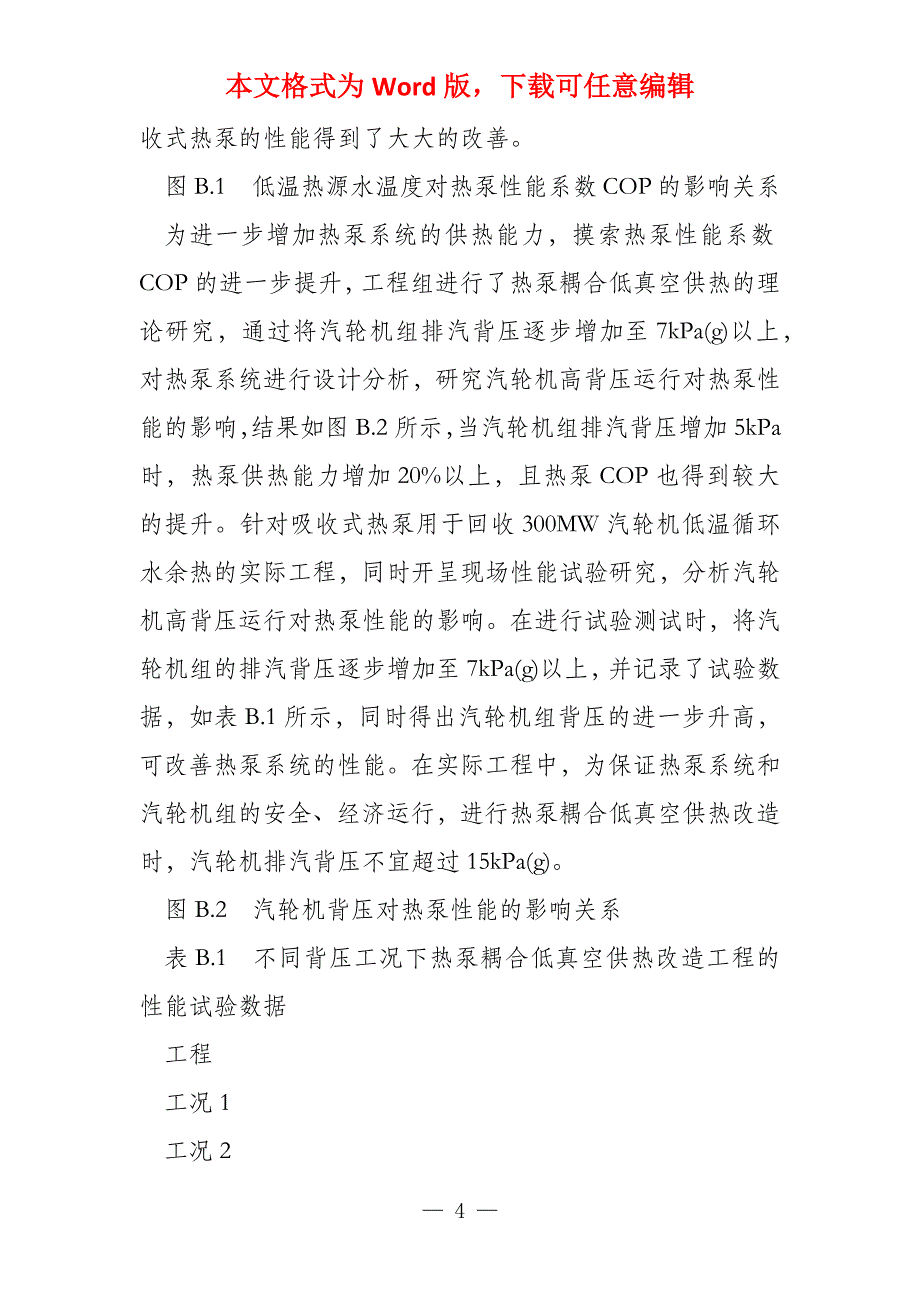 本文格式为 Word 版，下载可任意编辑
收式热泵的性能得到了大大的改善。
图 B.1　低温热源水温度对热泵性能系数 COP 的影响关系
为进一步增加热泵系统的供热能力，摸索热泵性能系数
COP 的进一步提升，工程组进行了热泵耦合低真空供热的理
论研究，通过将汽轮机组排汽背压逐步增加至 7kPa(g)以上，
对热泵系统进行设计分析，研究汽轮机高背压运行对热泵性
能的影响，结果如图 B.2 所示，当汽轮机组排汽背压增加 5kPa
时，热泵供热能力增加 20%以上，且热泵 COP 也得到较大
的提升。针对吸收式热泵用于回收 300MW 汽轮机低温循环
水余热的实际工程，同时开呈现场性能试验研究，分析汽轮
机高背压运行对热泵性能的影响。在进行试验测试时，将汽
轮机组的排汽背压逐步增加至 7kPa(g)以上，并记录了试验数
据，如表 B.1 所示，同时得出汽轮机组背压的进一步升高，
可改善热泵系统的性能。在实际工程中，为保证热泵系统和
汽轮机组的安全、经济运行，进行热泵耦合低真空供热改造
时，汽轮机排汽背压不宜超过 15kPa(g)。
图 B.2　汽轮机背压对热泵性能的影响关系
表 B.1　不同背压工况下热泵耦合低真空供热改造工程的
性能试验数据
工程
工况 1
工况 2
— 4 —